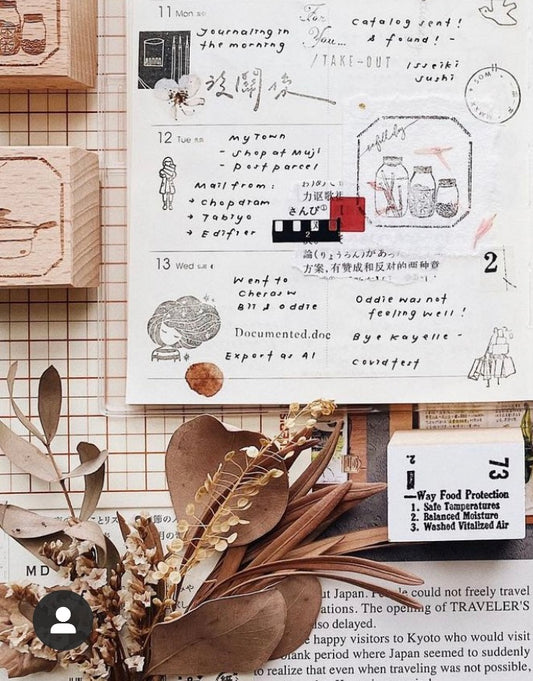 11 Mon
Journaling in
the morning
For
You...
/TAKE-OUT
Catalog sent!
& found! -
Isseiki
sushi
12 Tue
My Town
- Shop at Muji
- Post parcel
Mail from:
→ Chopdram
→ Tabiyo
→ Edifier
さんび
論(りょうろん)があっ
方案,有赞成和反对的两种意
2
13 Wed
Went to
Cheras w
Bii & Oddie
Documented.doc
Export as AI
Oddie was not
feeling well!
Bye Kayelle -
Covid test
2.
73
—Way Food Protection
1. Safe Temperatures
2. Balanced Moisture
3. Washed Vitalized Air
MD
ut Japan. People could not freely travel
ations. The opening of TRAVELER'S
also delayed.
happy visitors to Kyoto who would visit
blank period where Japan seemed to suddenly
to realize that even when traveling was not possible,